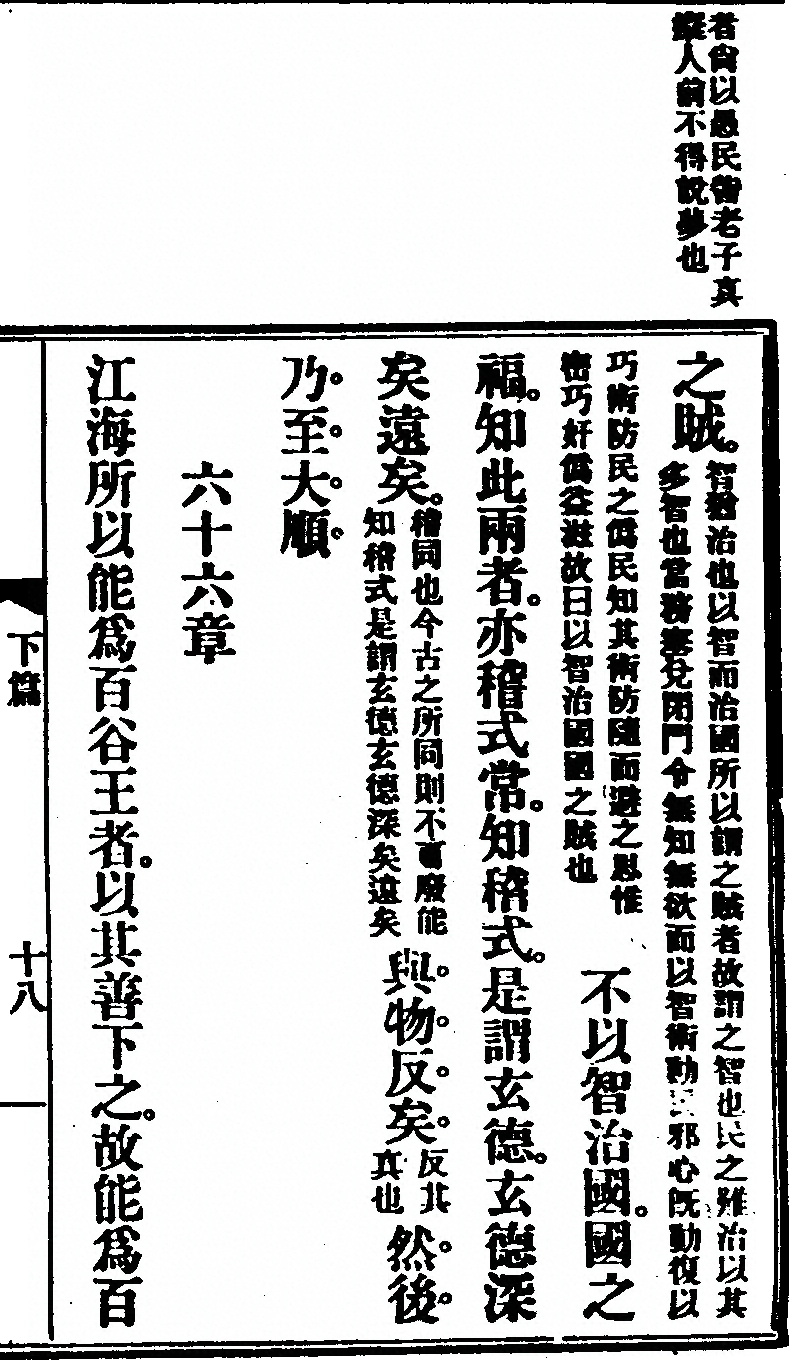 者尙以愚民譏老子真
癡人前不得說夢也
之賊。
智猶治也以智而治國所以謂之賊者故謂之智也民之難治以其
多智也當務塞兌閉門令無知無欲而以智術動民邪心既動復以
巧術防民之僞民知其術防隨而避之思惟
密巧奸僞益滋故曰以智治國國之賊也
不以智治國。國之
福。知此兩者。亦稽式常。知稽式。是謂玄德。玄德深
矣遠矣。
稽同也今古之所同則不可廢能
知稽式是謂玄德玄德深矣遠矣
與物反矣。
反其
真也
然後
乃至大順
六十六章
江海所以能爲百谷王者。以其善下之。故能爲百
下篇
十八